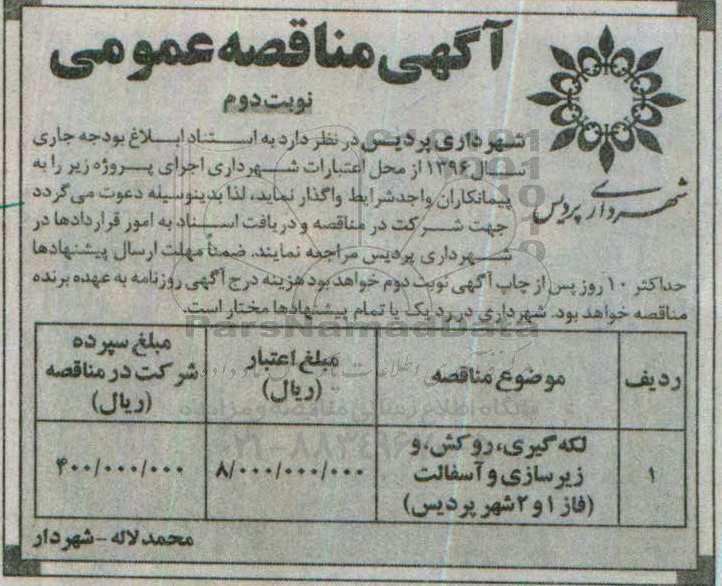 آگهی مناقصه عمومی
نوبت دوم
شهرداری پردیس
شهرداری پردیس در نظر دارد به استناد ابلاغ بودجه جاری
سال ۱۳۹۶ از محل اعتبارات شهرداری اجرای پروژه زیر را به
پیمانکاران واجد شرایط واگذار نماید، لذا بدینوسیله دعوت می گردد
جهت شرکت در مناقصه و دریافت اسناد به امور قراردادها در
شهرداری پردیس مراجعه نمایند. ضمناً مهلت ارسال پیشنهادها
حداکثر ۱۰ روز پس از چاپ آگهی نوبت دوم خواهد بود هزینه درج آگهی روزنامه به عهده برنده
مناقصه خواهد بود. شهرداری در رد یک یا تمام پیشنهادها مختار است.
ParsNamadData
ردیف
موضوع مناقصه
مبلغ اعتبار
(ریال)
مبلغ سپرده
شرکت در مناقصه
(ریال)
پایگاه اطلاع رسانی مناقصه و مزایده
۱
لکه گیری، روکش، و
زیرسازی و آسفالت
(فاز ۱ و ۲ شهر پردیس)
۸/۰۰۰/۰۰۰/۰۰۰
۴۰۰/۰۰۰/۰۰۰
محمد لاله - شهردار